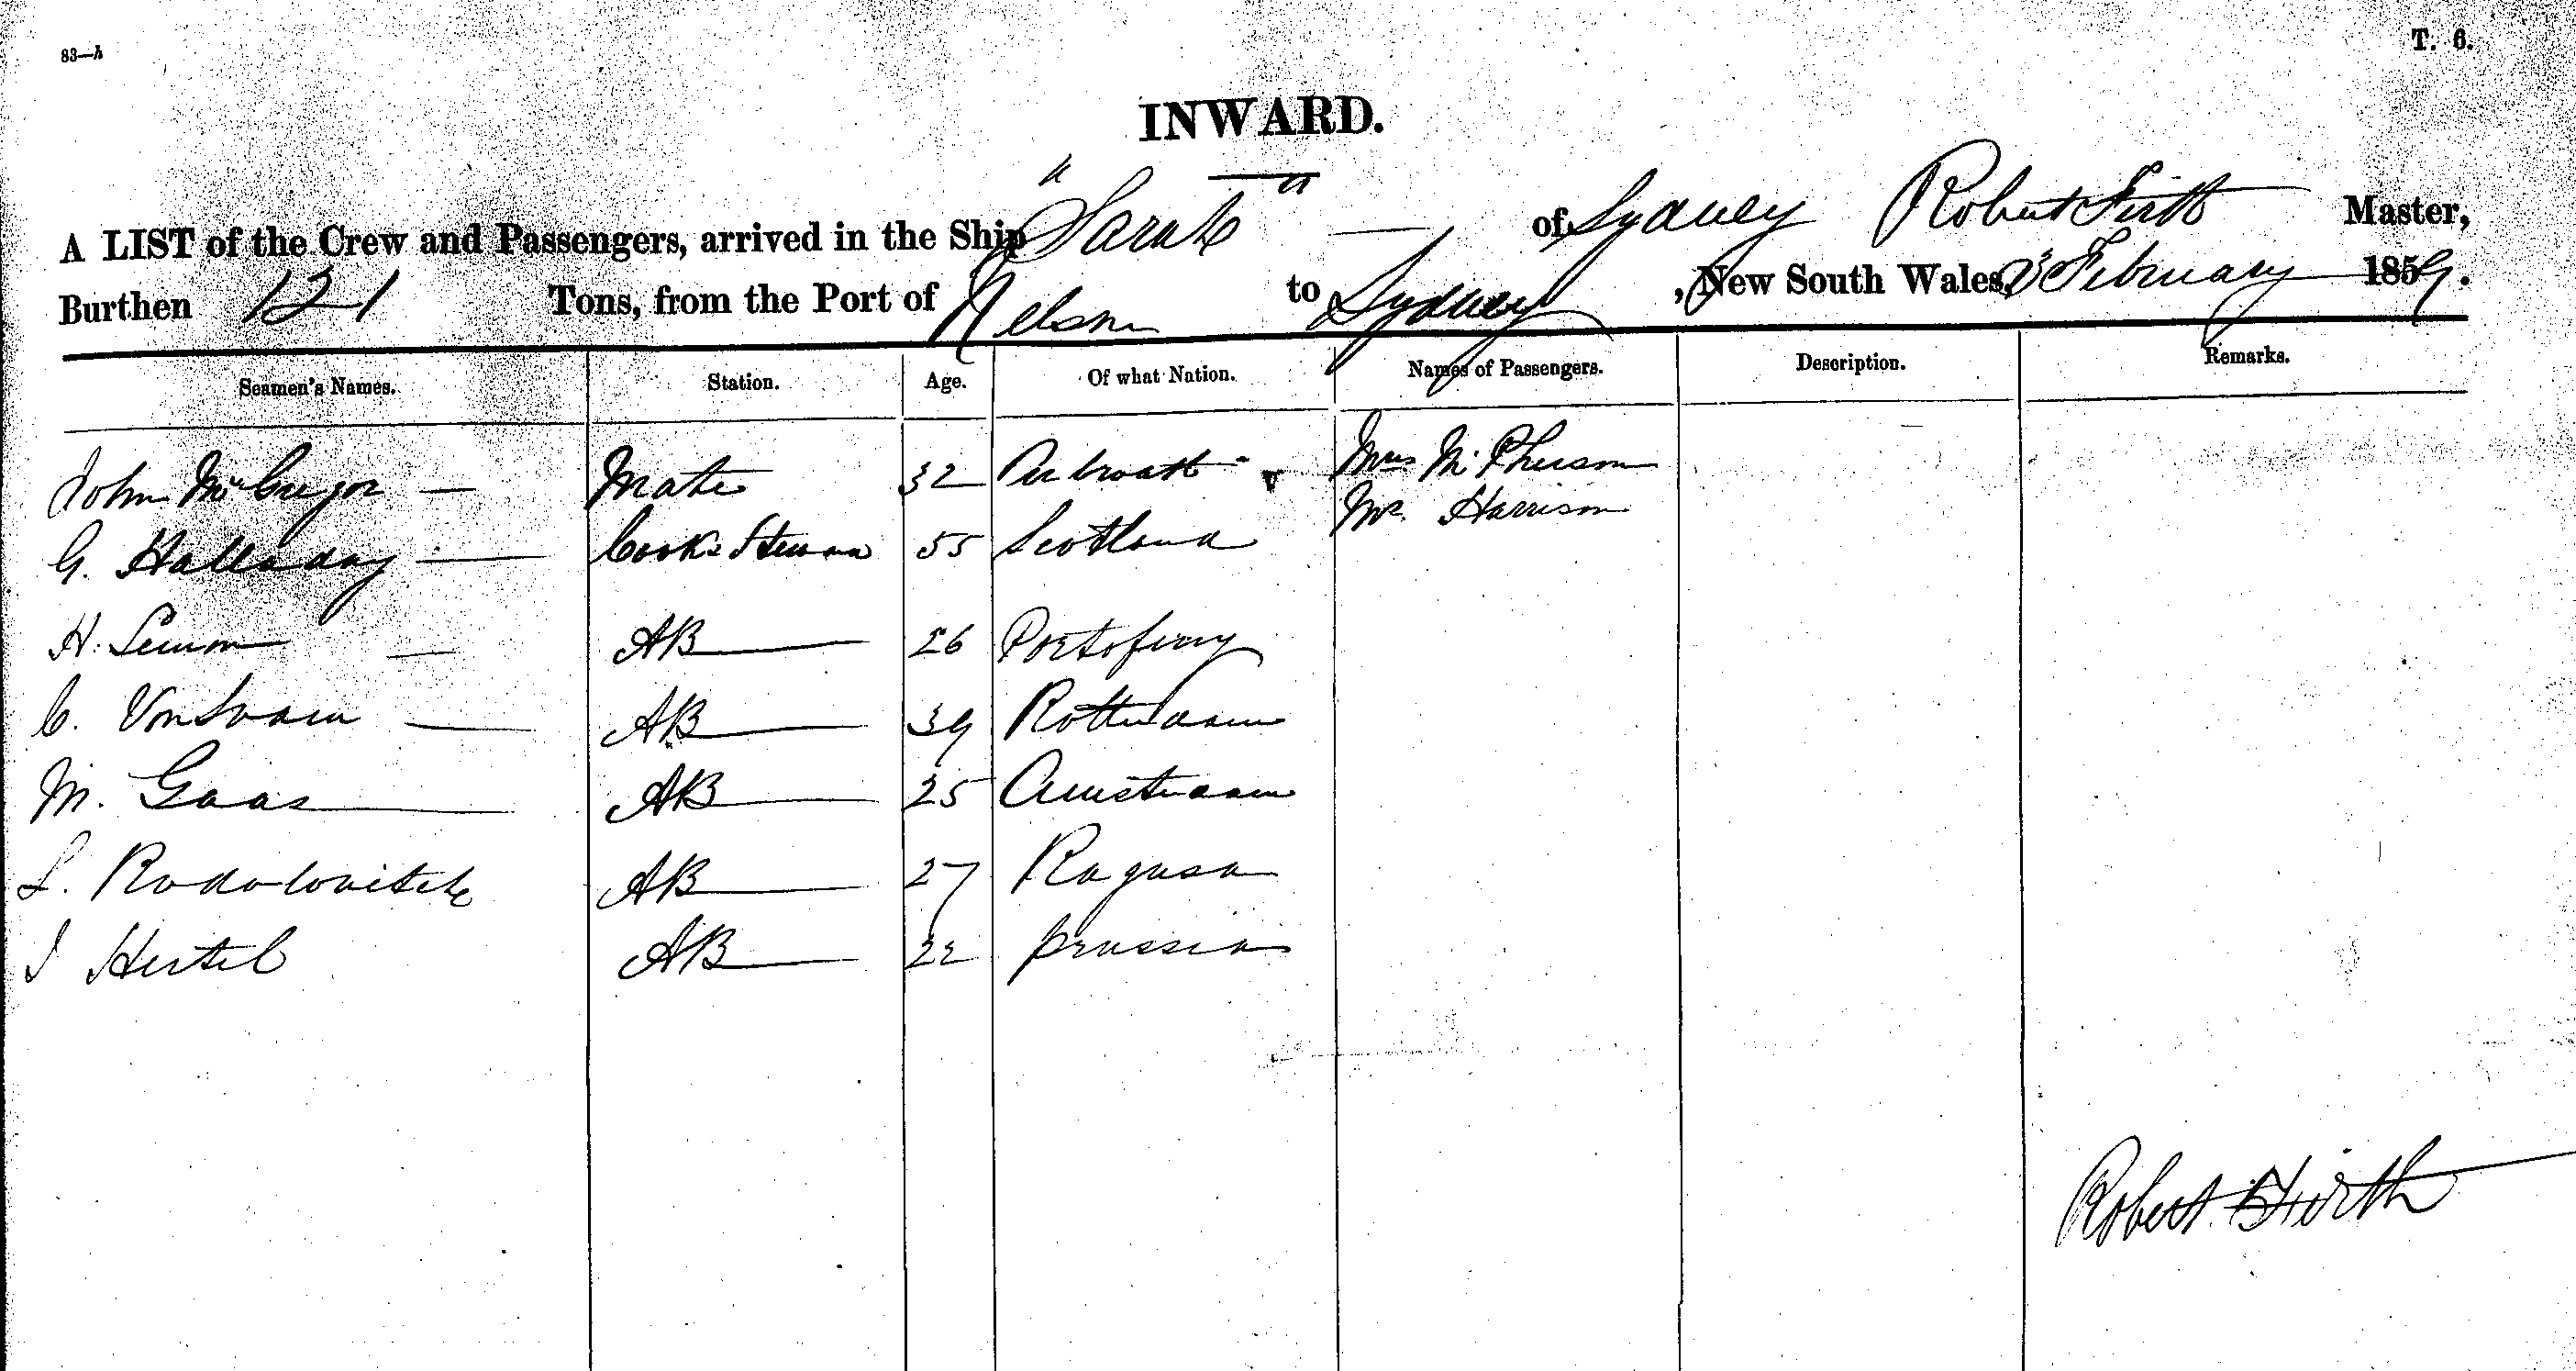 83—A
T. 6.
INWARD.
A LIST of the Crew and Passengers, arrived in the Ship "Sarah" of Sydney Robert Firth Master,
Burthen 121 Tons, from the Port of Nelson to Sydney, New South Wales, February 1859.
Seamen's Names. Station. Age. Of what Nation. Names of Passengers. Description. Remarks.
John McGregor Mate 32 Arbroath Mrs McPherson
Mr. Harrison
G. Halladay Cook & Steward 55 Scotland
H. Lemon AB 26 Portoferry
C. AB 39 Rotterdam
M. Gaas AB 25 Amsterdam
L. AB 27 Ragusa
J Hertel AB 22 prussia
Robert Firth